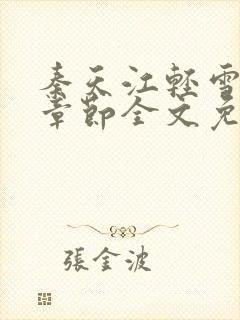 秦天江輕雪
章節全文免
張金波